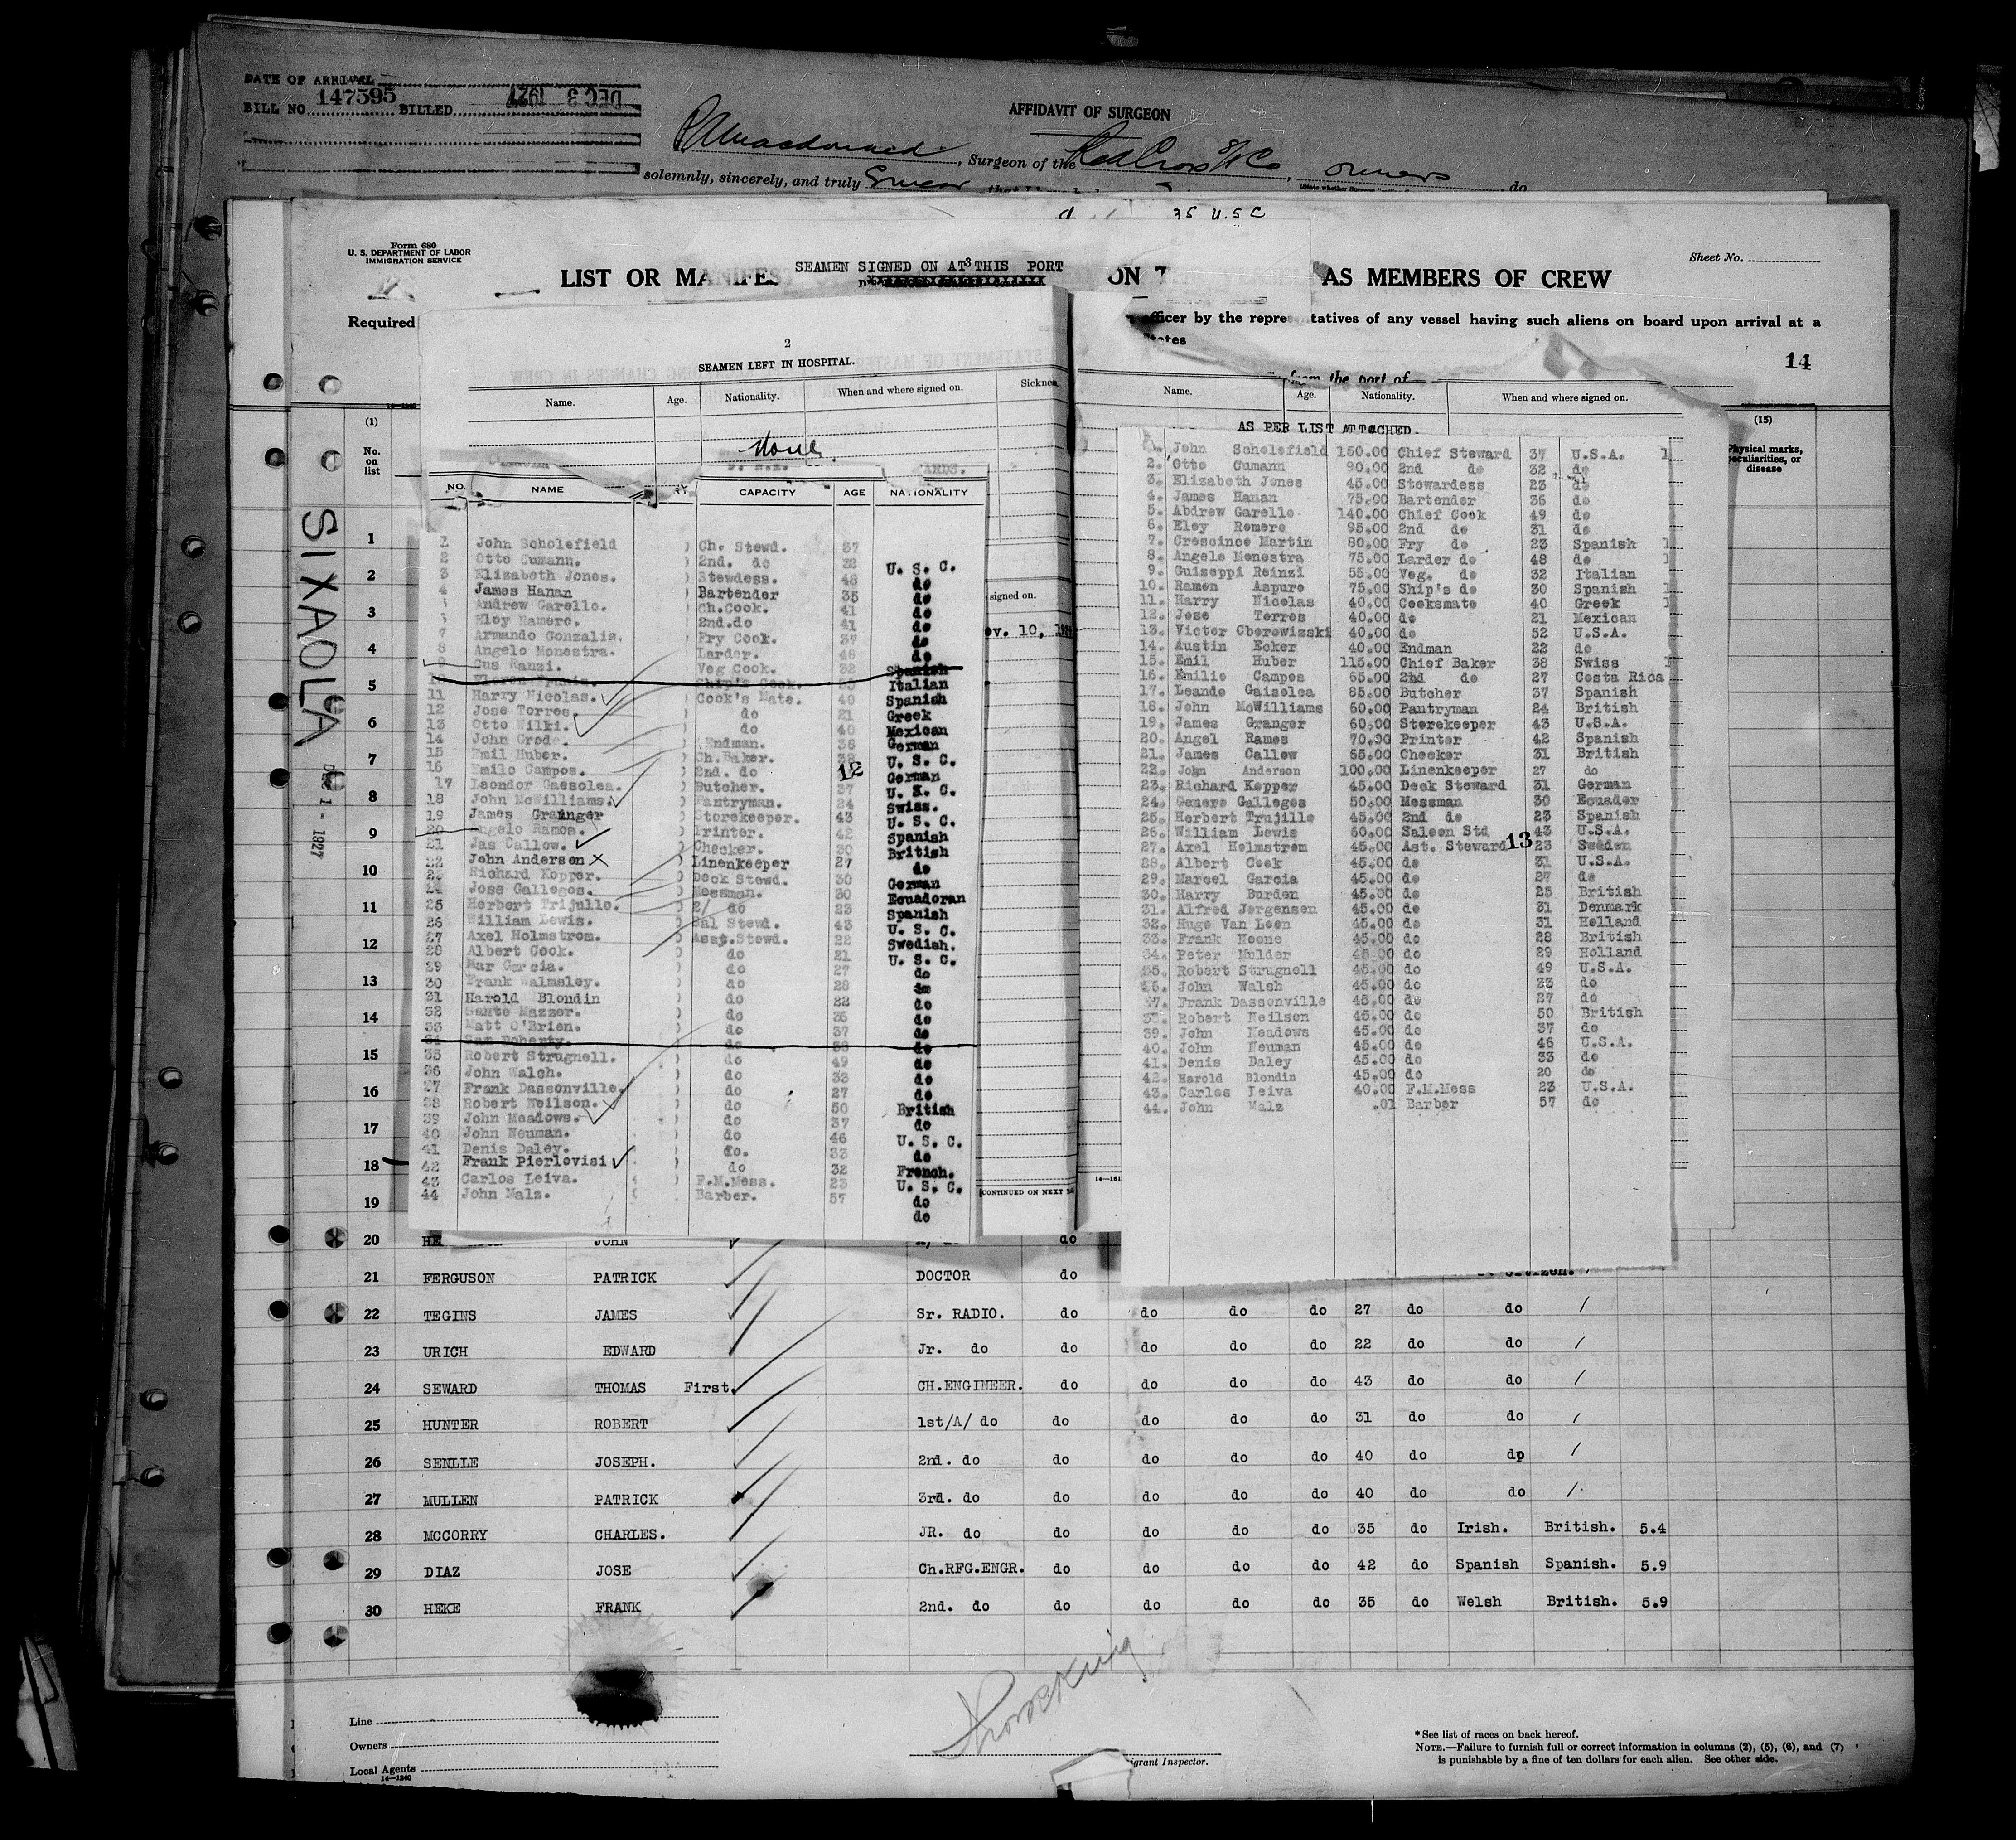 DATE OF ARRIVAL
BILL NO. 147595 BILLED DEC 3 1927
AFFIDAVIT OF SURGEON
Surgeon of the Red Cross owners
solemnly, sincerely, and truly Swear do
35 U.S.C
Form 680
U. S. DEPARTMENT OF LABOR
IMMIGRATION SERVICE
Sheet No.
SEAMEN SIGNED ON AT THIS PORT
3
LIST OR MANIFES ON T AS MEMBERS OF CREW
Required officer by the representatives of any vessel having such aliens on board upon arrival at a
States
14
from the port of
SIXAOLA
DEC 1 - 1927
(1)
No. on list
(15)
Physical marks, peculiarities, or disease
2
SEAMEN LEFT IN HOSPITAL.
Name. Age. Nationality. When and where signed on. Sickness
None.
NO. NAME CAPACITY AGE NATIONALITY
1 John Scholefield Ch. Stewd. 37
2 Otto Cumann. 2nd. do 32 U. S. C.
3 Elizabeth Jones. Stewdess. 48 do
4 James Hanan Bartender 35 do
5 Andrew Garello. Ch.Cook. 41 do
6 Eloy Ramero. 2nd.do 41 do
7 Armando Gonzalis. Fry Cook. 37 do
8 Angelo Monestra. Larder. 48 do
9 Gus Ranzi. Veg Cook. 32 Spanish
Ship's Cook. Italian
11 Harry Nicolas. Cook's Mate. 40 Spanish
12 Jose Torres. do 21 Greek
13 Otto Wilki. do 40 Mexican
14 John Grode. Endman. 36 German
15 Emil Huber. Ch.Baker. 38 U. S. C.
12
16 Emilo Campos. 2nd. do German
17 Leondor Gaesolea. Butcher. 37 U. S. C.
18 John McWilliams. Pantryman. 24 Swiss.
19 James Grainger Storekeeper. 43 U. S. C.
20 Angelo Ramos. Printer. 42 Spanish
21 Jas Callow. Checker. 30 British
22 John Anderson Linenkeeper 27 do
23 Richard Kopper. Deck Stewd. 30 German
24 Jose Gallegos. Messman. 30 Ecuadoran
25 Herbert Trijullo. 2/ do 23 Spanish
26 William Lewis. Sal Stewd. 43 U. S. C.
27 Axel Holmstrom. Asst.Stewd. 22 Swedish.
28 Albert Cook. do 21 U. S. C.
29 Mar Garcia. do 27 do
30 Frank Walmsley. do 28 do
31 Harold Blondin do 22 do
32 Sante Mazzer. do 35 do
33 Matt O'Brien. do 37 do
34 Sam Doherty. do 38 do
35 Robert Strugnell. do 49 do
36 John Walch. do 33 do
37 Frank Dassonville. do 27 do
38 Robert Neilson. do 50 British
39 John Meadows. do 37 do
40 John Neuman. do 46 U. S. C.
41 Denis Daley. do. 33 do
42 Frank Pierlovisi do 32 French.
43 Carlos Leiva. F.M.Mess. 23 U. S. C.
44 John Malz. Barber. 57 do
do
signed on.
Nov. 10, 192
(CONTINUED ON NEXT
Name. Age. Nationality. When and where signed on.
AS PER LIST ATTACHED.
1. John Scholefield 150.00 Chief Steward 37 U.S.A. 1
2. Otto Cumann 90.00 2nd do 32 do
3. Elizabeth Jones 45.00 Stewardess 23 do
4. James Hanan 75.00 Bartender 36 do
5. Abdrew Garello 140.00 Chief Cook 49 do
6. Eloy Romero 95.00 2nd do 31 do
7. Crescince Martin 80.00 Fry do 23 Spanish 1
8. Angelo Monestra 75.00 Larder do 48 do 1
9. Guiseppi Reinzi 55.00 Veg. do 32 Italian
10. Ramon Aspuro 75.00 Ship's do 30 Spanish 1
11. Harry Nicolas 40.00 Cooksmate 40 Greek 1
12. Jose Torres 40.00 do 21 Mexican
13. Victor Oberowizski 40.00 do 52 U.S.A.
14. Austin Ecker 40.00 Endman 22 do
15. Emil Huber 115.00 Chief Baker 38 Swiss 1
16. Emilio Campos 65.00 2bd do 27 Costa Rica
17. Leando Gaisolea 85.00 Butcher 37 Spanish
18. John McWilliams 60.00 Pantryman 24 British
19. James Granger 60.00 Storekeeper 43 U.S.A.
20. Angel Rames 70.00 Printer 42 Spanish
21. James Callow 65.00 Checker 31 British
22. John Anderson 100.00 Linenkeeper 27 do
23. Richard Kopper 45.00 Deck Steward 31 German
24. Genero Gallegos 50.00 Messman 30 Ecuador
25. Herbert Trujille 45.00 2nd do 23 Spanish
26. William Lewis 60.00 Saleon Std 43 U.S.A.
13
27. Axel Holmstrom 45.00 Ast. Steward 23 Sweden
28. Albert Cook 45.00 do 31 U.S.A.
29. Marcel Garcia 45.00 do 27 do
30. Harry Burden 45.00 do 25 British
31. Alfred Jorgensen 45.00 do 31 Denmark
32. Hugo Van Loon 45.00 do 31 Holland
33. Frank Noone 45.00 do 28 British
34. Peter Mulder 45.00 do 29 Holland
35. Robert Strugnell 45.00 do 49 U.S.A.
36. John Walsh 45.00 do 33 do
37. Frank Dassonville 45.00 do 27 do
38. Robert Neilson 45.00 do 50 British
39. John Meadows 45.00 do 37 do
40. John Neuman 45.00 do 46 U.S.A.
41. Denis Daley 45.00 do 33 do
42. Harold Blondin 45.00 do 20 do
43. Carlos Leiva 40.00 F.M.Mess 23 U.S.A.
44. John Malz .01 Barber 57 do
1
2
3
4
5
6
7
8
9
10
11
12
13
14
15
16
17
18
19
20 HE JOHN do
21 FERGUSON PATRICK DOCTOR do
22 TEGINS JAMES Sr. RADIO. do do do do 27 do do
23 URICH EDWARD Jr. do do do do do 22 do do
24 SEWARD THOMAS First. CH.ENGINEER. do do do do 43 do do
25 HUNTER ROBERT 1st/A/ do do do do do 31 do do
26 SENLLE JOSEPH. 2nd. do do do do do 40 do do
27 MULLEN PATRICK 3rd. do do do do do 40 do do
28 MCCORRY CHARLES. JR. do do do do do 35 do Irish. British. 5.4
29 DIAZ JOSE Ch.RFG.ENGR. do do do do 42 do Spanish Spanish. 5.9
30 HEKE FRANK 2nd. do do do do do 35 do Welsh British. 5.9
Line
Owners
Local Agents
14—1240
Immigrant Inspector.
* See list of races on back hereof.
NOTE.—Failure to furnish full or correct information in columns (2), (5), (6), and (7)
is punishable by a fine of ten dollars for each alien. See other side.